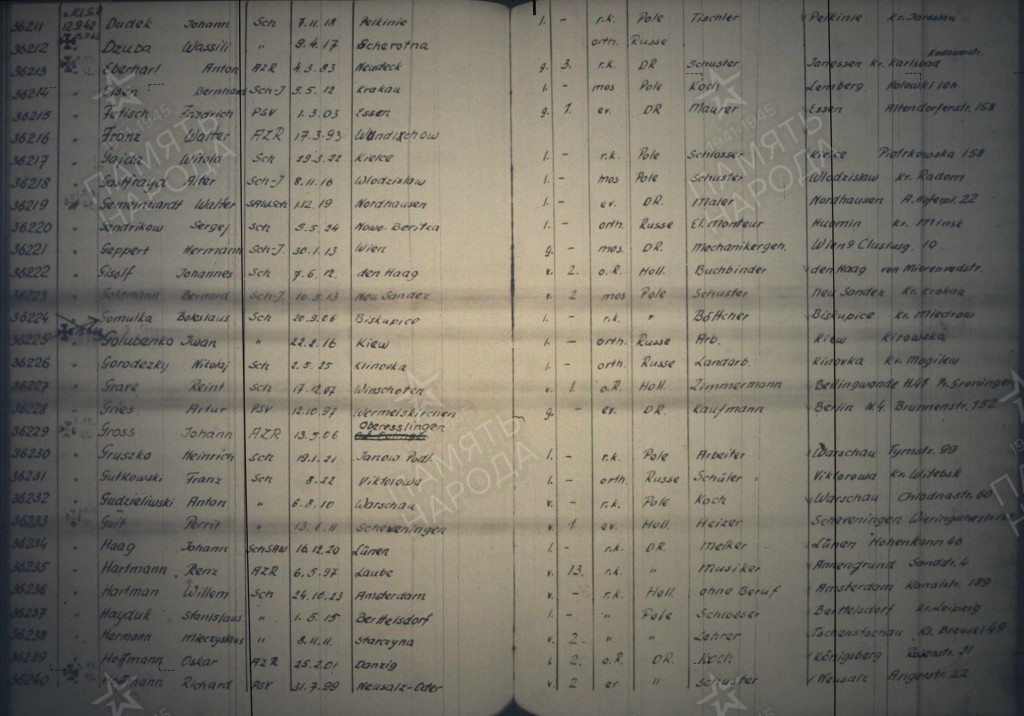 v. Kl.S.R.
36211 12.9.42 Dudek Johann Sch 7.11.18 Pelkinie l. - r.k. Pole Tischler Pelkinie Kr. Jaroslau
36212 " Dzuba Wassili " 9.4.17 Scherotna orth. Russe
36213 " Eberhart Anton AZR 4.3.83 Neudeck g. 3. r.k. DR Schuster Janessen Kr. Karlsbad
36214 " Eisen Bernhard Sch-J 5.5.12 Krakau l. - mos Pole Koch Lemberg
36215 " Fetisch Friedrich PSV 1.3.03 Essen g. 1. ev. DR Maurer Essen Altendorferstr. 158
36216 " Franz Walter AZR 17.3.93 Wendixchow
36217 " Gajda Witold Sch 29.3.22 Kielce l. - r.k. Pole Schlosser Kielce Piotrkowska 158
36218 " Gastfrayd Alter Sch-J 8.11.16 Wlodzislaw l. - mos Pole Schuster Wlodzislaw Kr. Radom
36219 " Gemeinhardt Walter SAWSch 1.12.19 Nordhausen l. - ev. DR. Maler Nordhausen 22
36220 " Gendrikow Sergej Sch 5.5.24 l. - orth. Russe El. Monteur Kr. Minsk
36221 " Geppert Hermann Sch-J. 30.1.13 Wien g. - mos. DR. Mechanikergeh. Wien 9 10
36222 " Gisolf Johannes Sch 7.6.12. den Haag v. 2. o.R. Holl. Buchbinder den Haag von Mierenvedstr.
36223 " Goldmann Bernard Sch-J. 10.5.13 Neu Sandez v. 2 mos Pole Schuster Neu Sandez Kr. Krakau
36224 " Gomulka Boleslaus Sch 20.9.06 Biskupice l. - r.k. " Böttcher Biskupice Kr. Miedrow
36225 " Golubenko Iwan " 22.2.16 Kiew l. - orth. Russe Arb. Kiew Kirowska
36226 " Gorodezky Nikolaj Sch 2.5.25 Klinovka l. - orth. Russe Landarb. Klinovka Kr. Mogilew
36227 " Grare Reint Sch 17.12.07 Winschoten v. 1 o.R. Holl. Zimmermann Bellingwonde Pr. Groningen
36228 " Gries Artur PSV 12.10.97 Wermelskirchen g. - ev. DR. Kaufmann Berlin N.4. Brunnenstr. 152
36229 " Gross Johann AZR 13.9.06 Oberesslingen
36230 " Gruszko Heinrich Sch 19.1.21 Janow Podl. l. - r.k. Pole Arbeiter Warschau 99
36231 " Gutkowski Franz Sch 8.22 Viktorowa l. - orth. Russe Schüler Viktorowa Kr. Witebsk
36232 " Gudzieliwski Anton " 6.8.10 Warschau v. - r.k. Pole Koch Warschau Chlodnastr. 60
36233 " Guit Perrit " 13.6.11 Scheveningen v. 1. ev. Holl. Heizer Scheveningen
36234 " Haag Johann SchSAW 16.12.20 Lünen l. - r.k. DR. Melker Lünen 46
36235 " Hartmann Renz AZR 6.5.97 Laube v. 13. r.k. " Musiker Annengrund Sandstr. 4
36236 " Hartman Willem Sch 24.10.23 Amsterdam v. - r.k. Holl. ohne Beruf Amsterdam Kanalstr. 189
36237 " Hayduk Stanislaus " 1.5.15 Berthelsdorf l. - " Pole Schlosser Berthelsdorf Kr. Leipzig
36238 " Hermann Mieczyslaus " 8.11.11. Starczyna v. 2. " " Lehrer Tschenstochau 49
36239 " Hoffmann Oskar AZR 25.2.01 Danzig 2. o.R. DR. Koch Königsberg Rosenstr. 21
36240 " Hoffmann Richard PSV 31.7.99 Neusalz-Oder v. 2 ev " Schuster Neusalz Angerstr. 22
ПАМЯТЬ НАРОДА
1941-1945